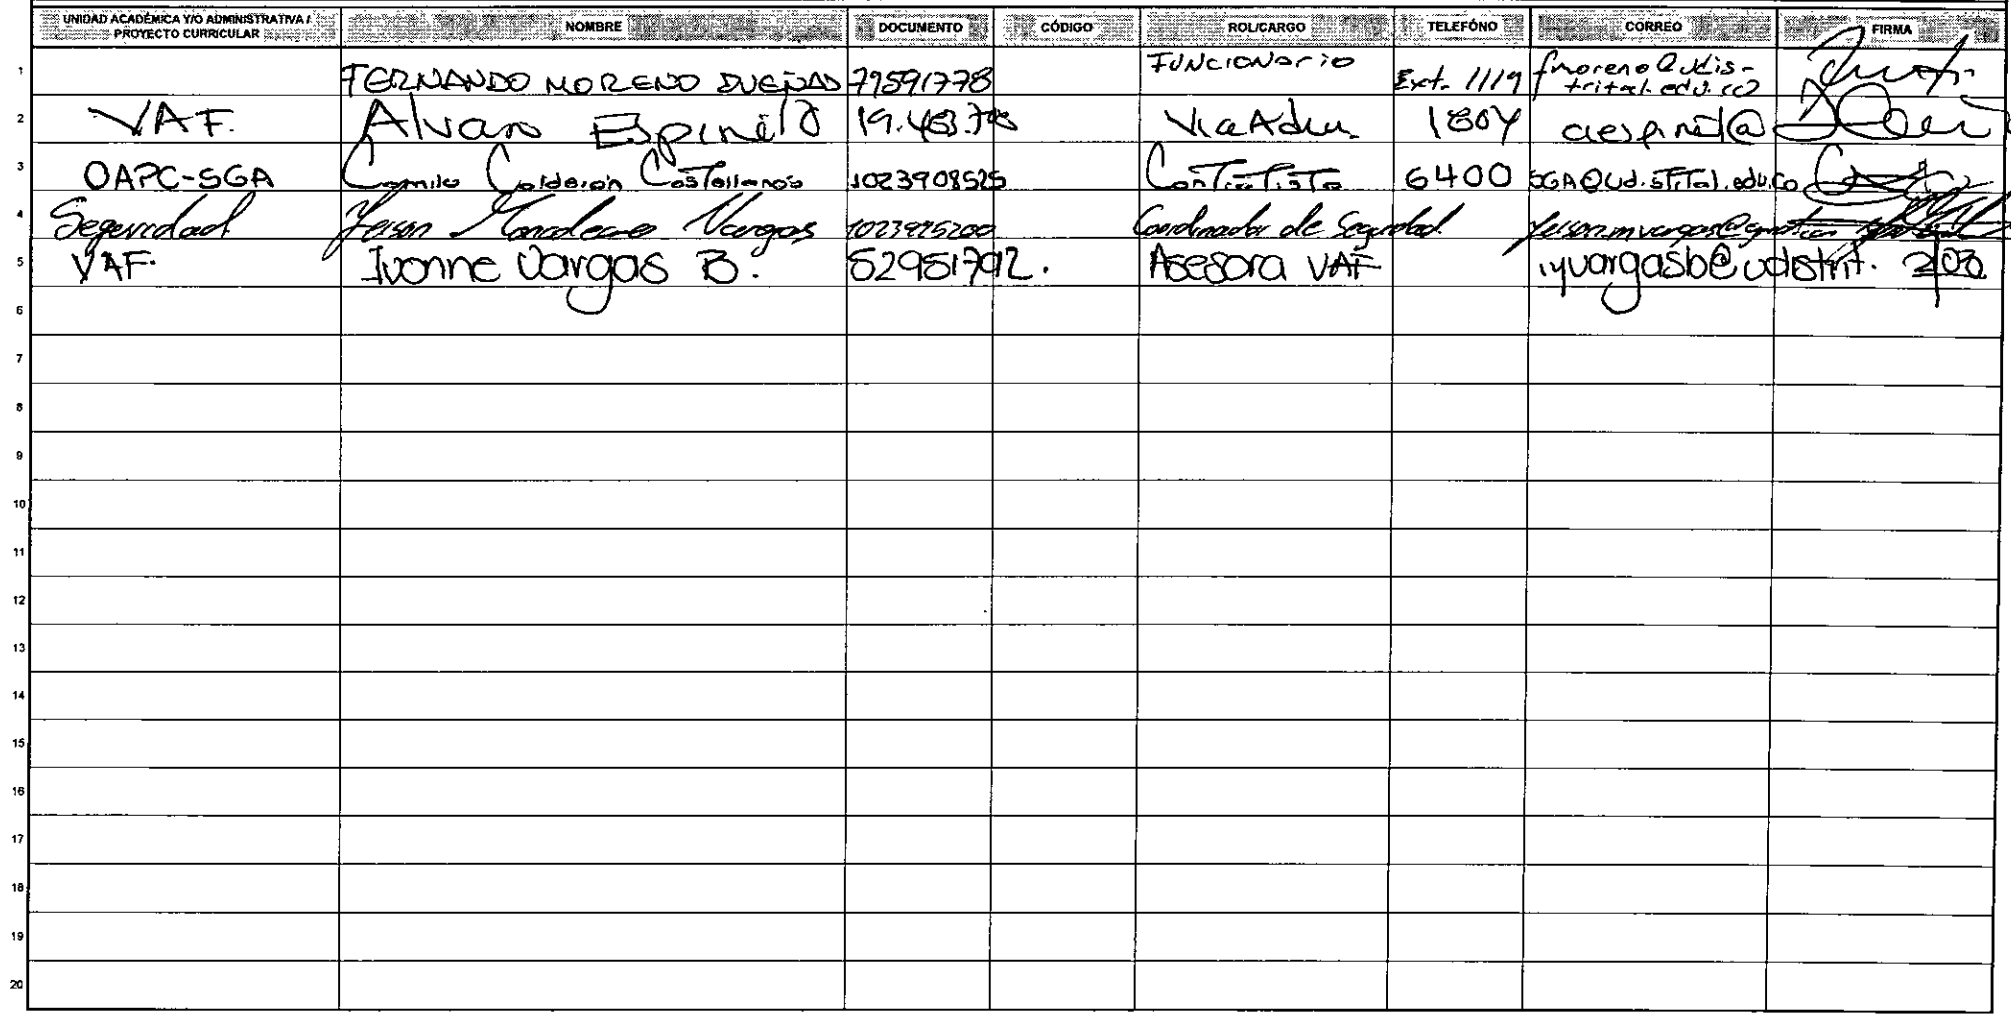 UNIDAD ACADÉMICA Y/O ADMINISTRATIVA / PROYECTO CURRICULAR NOMBRE DOCUMENTO CÓDIGO ROL/CARGO TELEFÓNO CORREO FIRMA
1 FERNANDO MORENO DUEÑAS 79591778 FUNCIONArio Ext. 1119 fmoreno@udis-
trital.edu.co
2 VAF. Alvaro Espinel 1804 aespinel@
3 OAPC-SGA Camilo Calderón Castellanos 1023908525 Contratista 6400 SGA@Udistrital.edu.co
4 Seguridad Yeison Vargas Coordinador de Seguridad
5 VAF. Ivonne Vargas B. 52951792. Asesora VAF iyvargasb@udistrit.
6
7
8
9
10
11
12
13
14
15
16
17
18
19
20